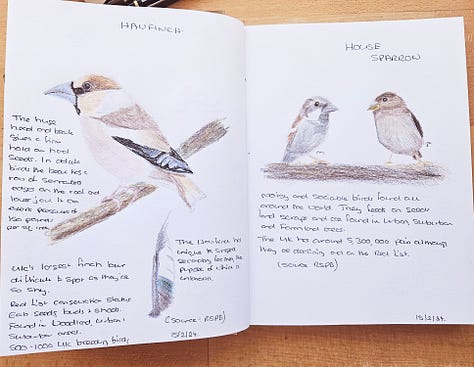 HAWFINCH
The huge
head and beak
gives a firm
hold on hard
seeds. In adult
birds the beak has a
row of serrated
edges on the roof and
lower jaw. It can
exert pressure of
150 pounds
per sq. inch.
UK's largest finch but
difficult to spot as they're
so shy.
Red List conservation status
Eats seeds, buds & shoots.
Found in Woodland, Urban &
Suburban areas.
500-1000 UK breeding birds
The Hawfinch has
unique
secondary feathers, the
purpose of which is
unknown.
(Source: RSPB)
15/2/24.
HOUSE
SPARROW
Noisy and sociable birds found all
around the world. They feed on seeds
and scraps and are found in Urban, Suburban
and Farmland areas.
The UK has around 5,300,000 pairs although
they are declining and on the Red List.
(Source RSPB)
15/2/24.